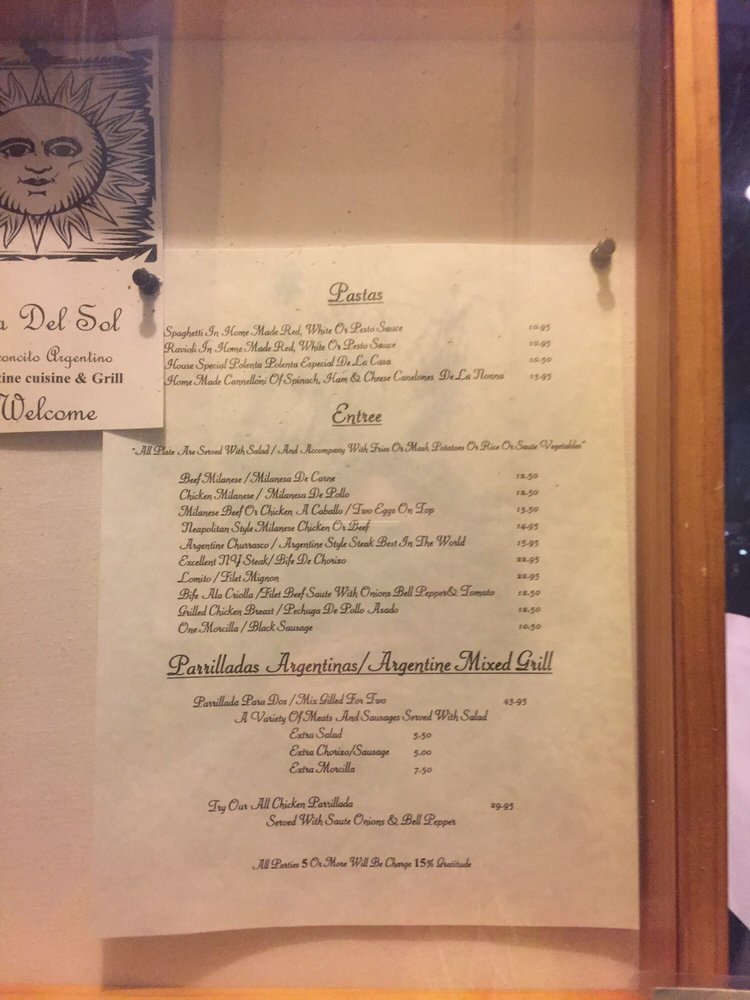 Del Sol
Argentino
cuisine & Grill
Welcome
Pastas
Spaghetti In Home Made Red, White Or Pesto Sauce 10.95
Ravioli In Home Made Red, White Or Pesto Sauce 10.95
House Special Polenta Polenta Especial De La Casa 10.50
Home Made Cannelloni Of Spinach, Ham & Cheese Canelones De La Nonna 13.95
Entree
"All Plate Are Served With Salad / And Accompany With Fries Or Mash Potatoes Or Rice Or Saute Vegetables"
Beef Milanese / Milanesa De Carne 12.50
Chicken Milanese / Milanesa De Pollo 12.50
Milanese Beef Or Chicken A Caballo / Two Eggs On Top 13.50
Neapolitan Style Milanese Chicken Or Beef 14.95
Argentine Churrasco / Argentine Style Steak Best In The World 15.95
Excellent NY Steak/ Bife De Chorizo 22.95
Lomito / Filet Mignon 22.95
Bife Ala Criolla /Filet Beef Saute With Onions Bell Pepper& Tomato 12.50
Grilled Chicken Breast / Pechuga De Pollo Asado 12.50
One Morcilla / Black Sausage 10.50
Parrilladas Argentinas/Argentine Mixed Grill
Parrillada Para Dos / Mix Gilled For Two 43.95
A Variety Of Meats And Sausages Served With Salad
Extra Salad 5.50
Extra Chorizo/Sausage 5.00
Extra Morcilla 7.50
Try Our All Chicken Parrillada 29.95
Served With Saute Onions & Bell Pepper
All Parties 5 Or More Will Be Charge 15% Gratitude